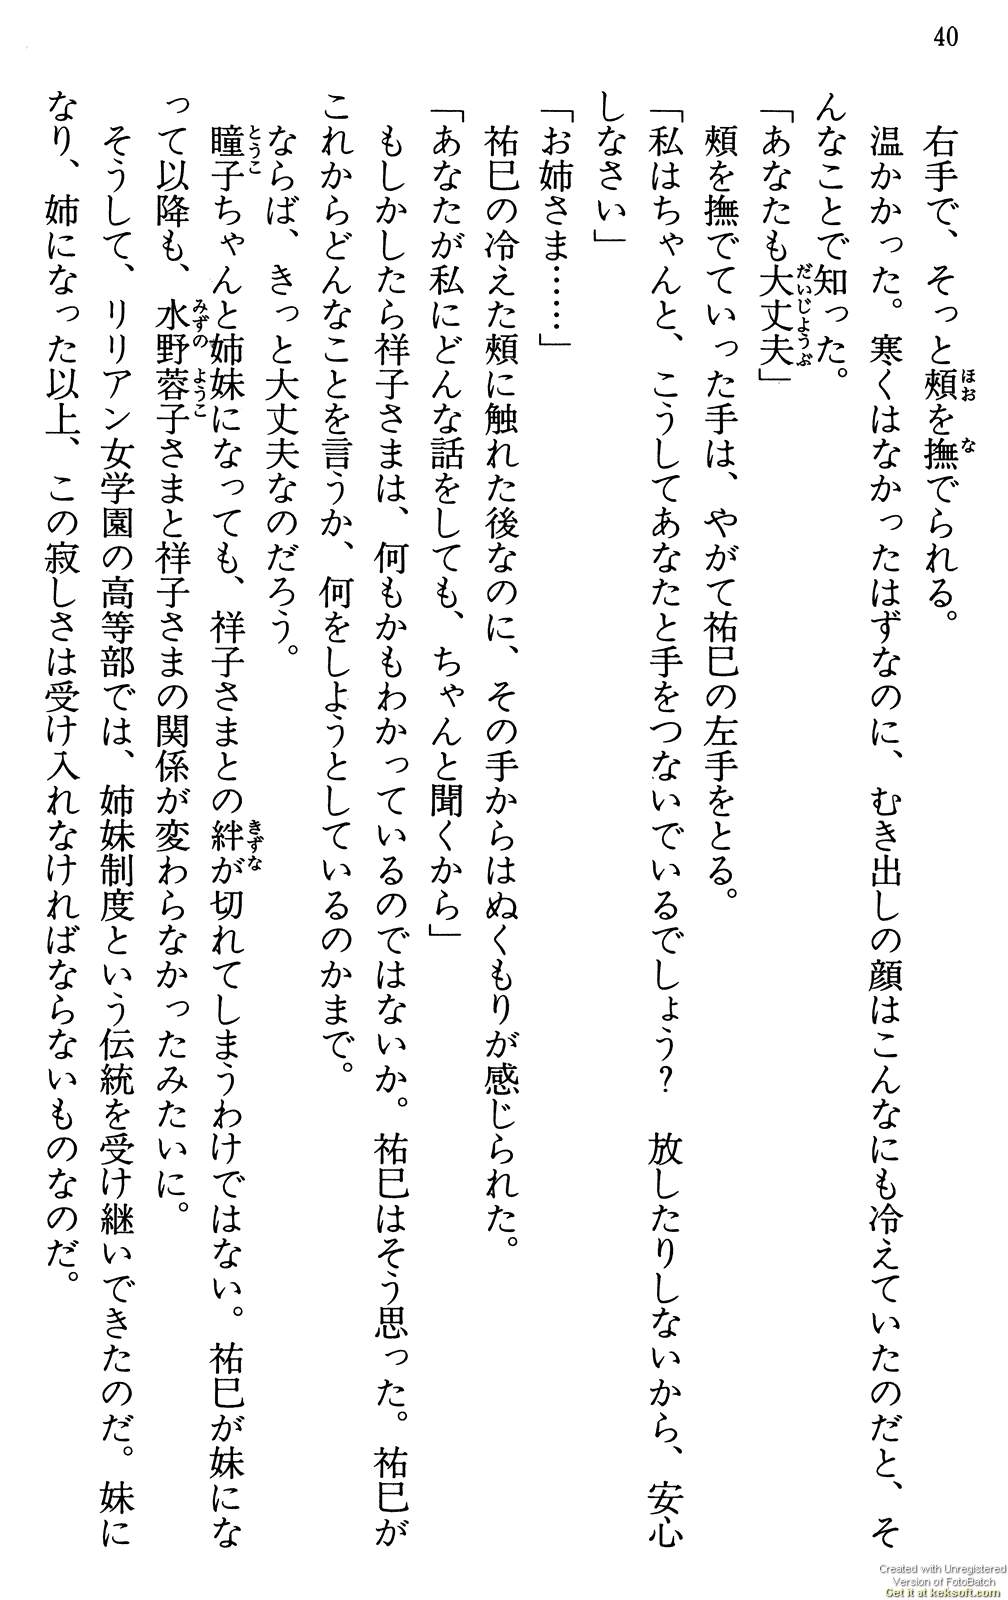 40
右手で、そっと頰を撫でられる。
温かかった。寒くはなかったはずなのに、むき出しの顔はこんなにも冷えていたのだと、そ
んなことで知った。
「あなたも大丈夫」
頰を撫でていった手は、やがて祐巳の左手をとる。
「私はちゃんと、こうしてあなたと手をつないでいるでしょう？　放したりしないから、安心
しなさい」
「お姉さま……」
祐巳の冷えた頰に触れた後なのに、その手からはぬくもりが感じられた。
「あなたが私にどんな話をしても、ちゃんと聞くから」
もしかしたら祥子さまは、何もかもわかっているのではないか。祐巳はそう思った。祐巳が
これからどんなことを言うか、何をしようとしているのかまで。
ならば、きっと大丈夫なのだろう。
瞳子ちゃんと姉妹になっても、祥子さまとの絆が切れてしまうわけではない。祐巳が妹にな
って以降も、水野蓉子さまと祥子さまの関係が変わらなかったみたいに。
そうして、リリアン女学園の高等部では、姉妹制度という伝統を受け継いできたのだ。妹に
なり、姉になった以上、この寂しさは受け入れなければならないものなのだ。
ほお
な
だいじょうぶ
とうこ
きずな
みずの
ようこ
Created with Unregistered
Version of FotoBatch
Get it at keksoft.com